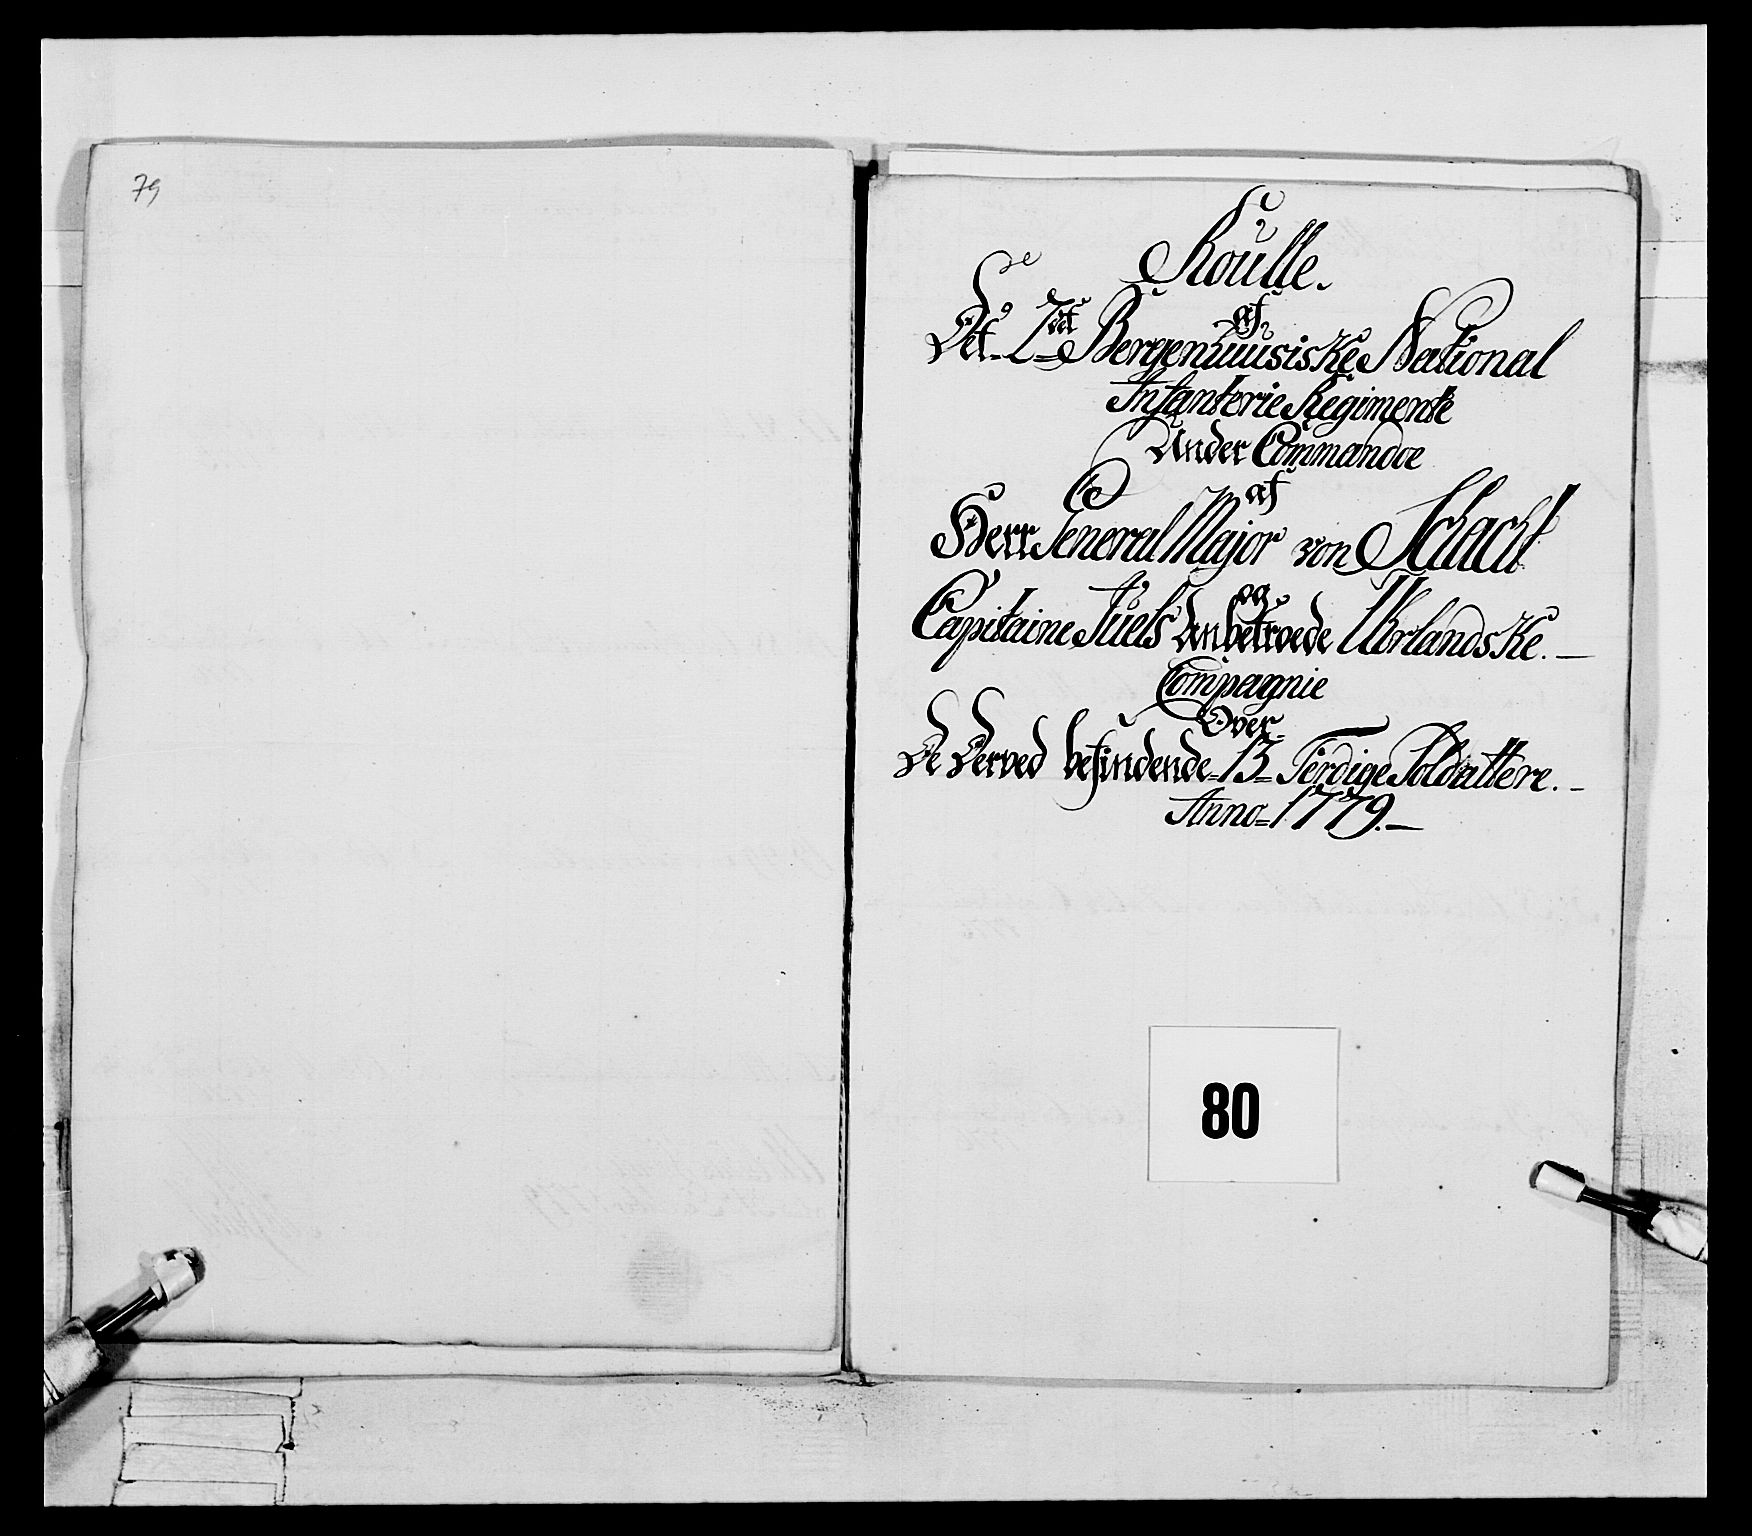 79
Roulle.
af
Det 2det Bergenhuusiske National
Infanterie Regimente
Under Commandoe
af
Herr General Major von Schacht
og
Capitaine Juels Anbetroede Urlandske.
Compagnie
Over
De Derved befindende 13 Ferdige Soldattere.
Anno 1779.
80